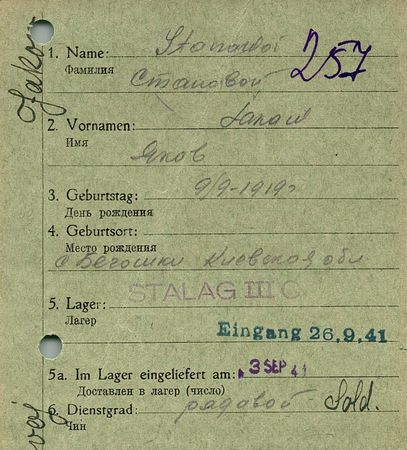 1. Name: Stanowoi
257
Фамилия Становой
2. Vornamen:
Имя Яков
3. Geburtstag: 9/9-1919г
День рождения
4. Geburtsort:
Место рождения
с Киевская обл
5. Lager: STALAG III C
Лагер
Eingang 26.9.41
5a. Im Lager eingeliefert am: 3 SEP 41
Доставлен в лагер (число)
6. Dienstgrad: рядавой Sold.
Чин